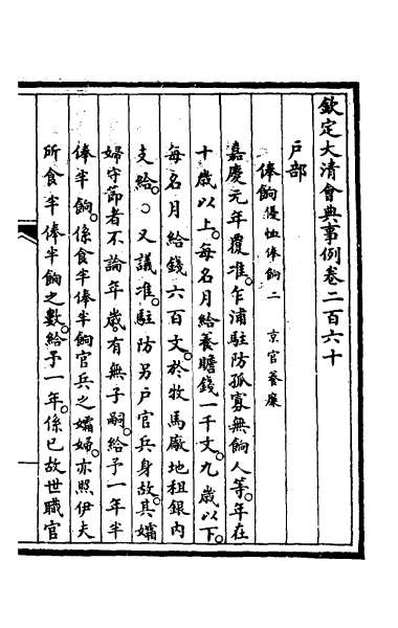 欽定大清會典事例卷二百六十
戶部
俸餉優恤俸餉二 京官養廉
嘉慶元年覆准。乍浦駐防孤寡無餉人等。年在
十歲以上。每名月給養贍錢一千文。九歲以下。
每名月給錢六百文。於牧馬廠地租銀內
支給。○又議准。駐防另戶官兵身故。其孀
婦守節者不論年歲。有無子嗣。給予一年半
俸半餉。係食半俸半餉官兵之孀婦。亦照伊夫
所食半俸半餉之數。給予一年。係已故世職官